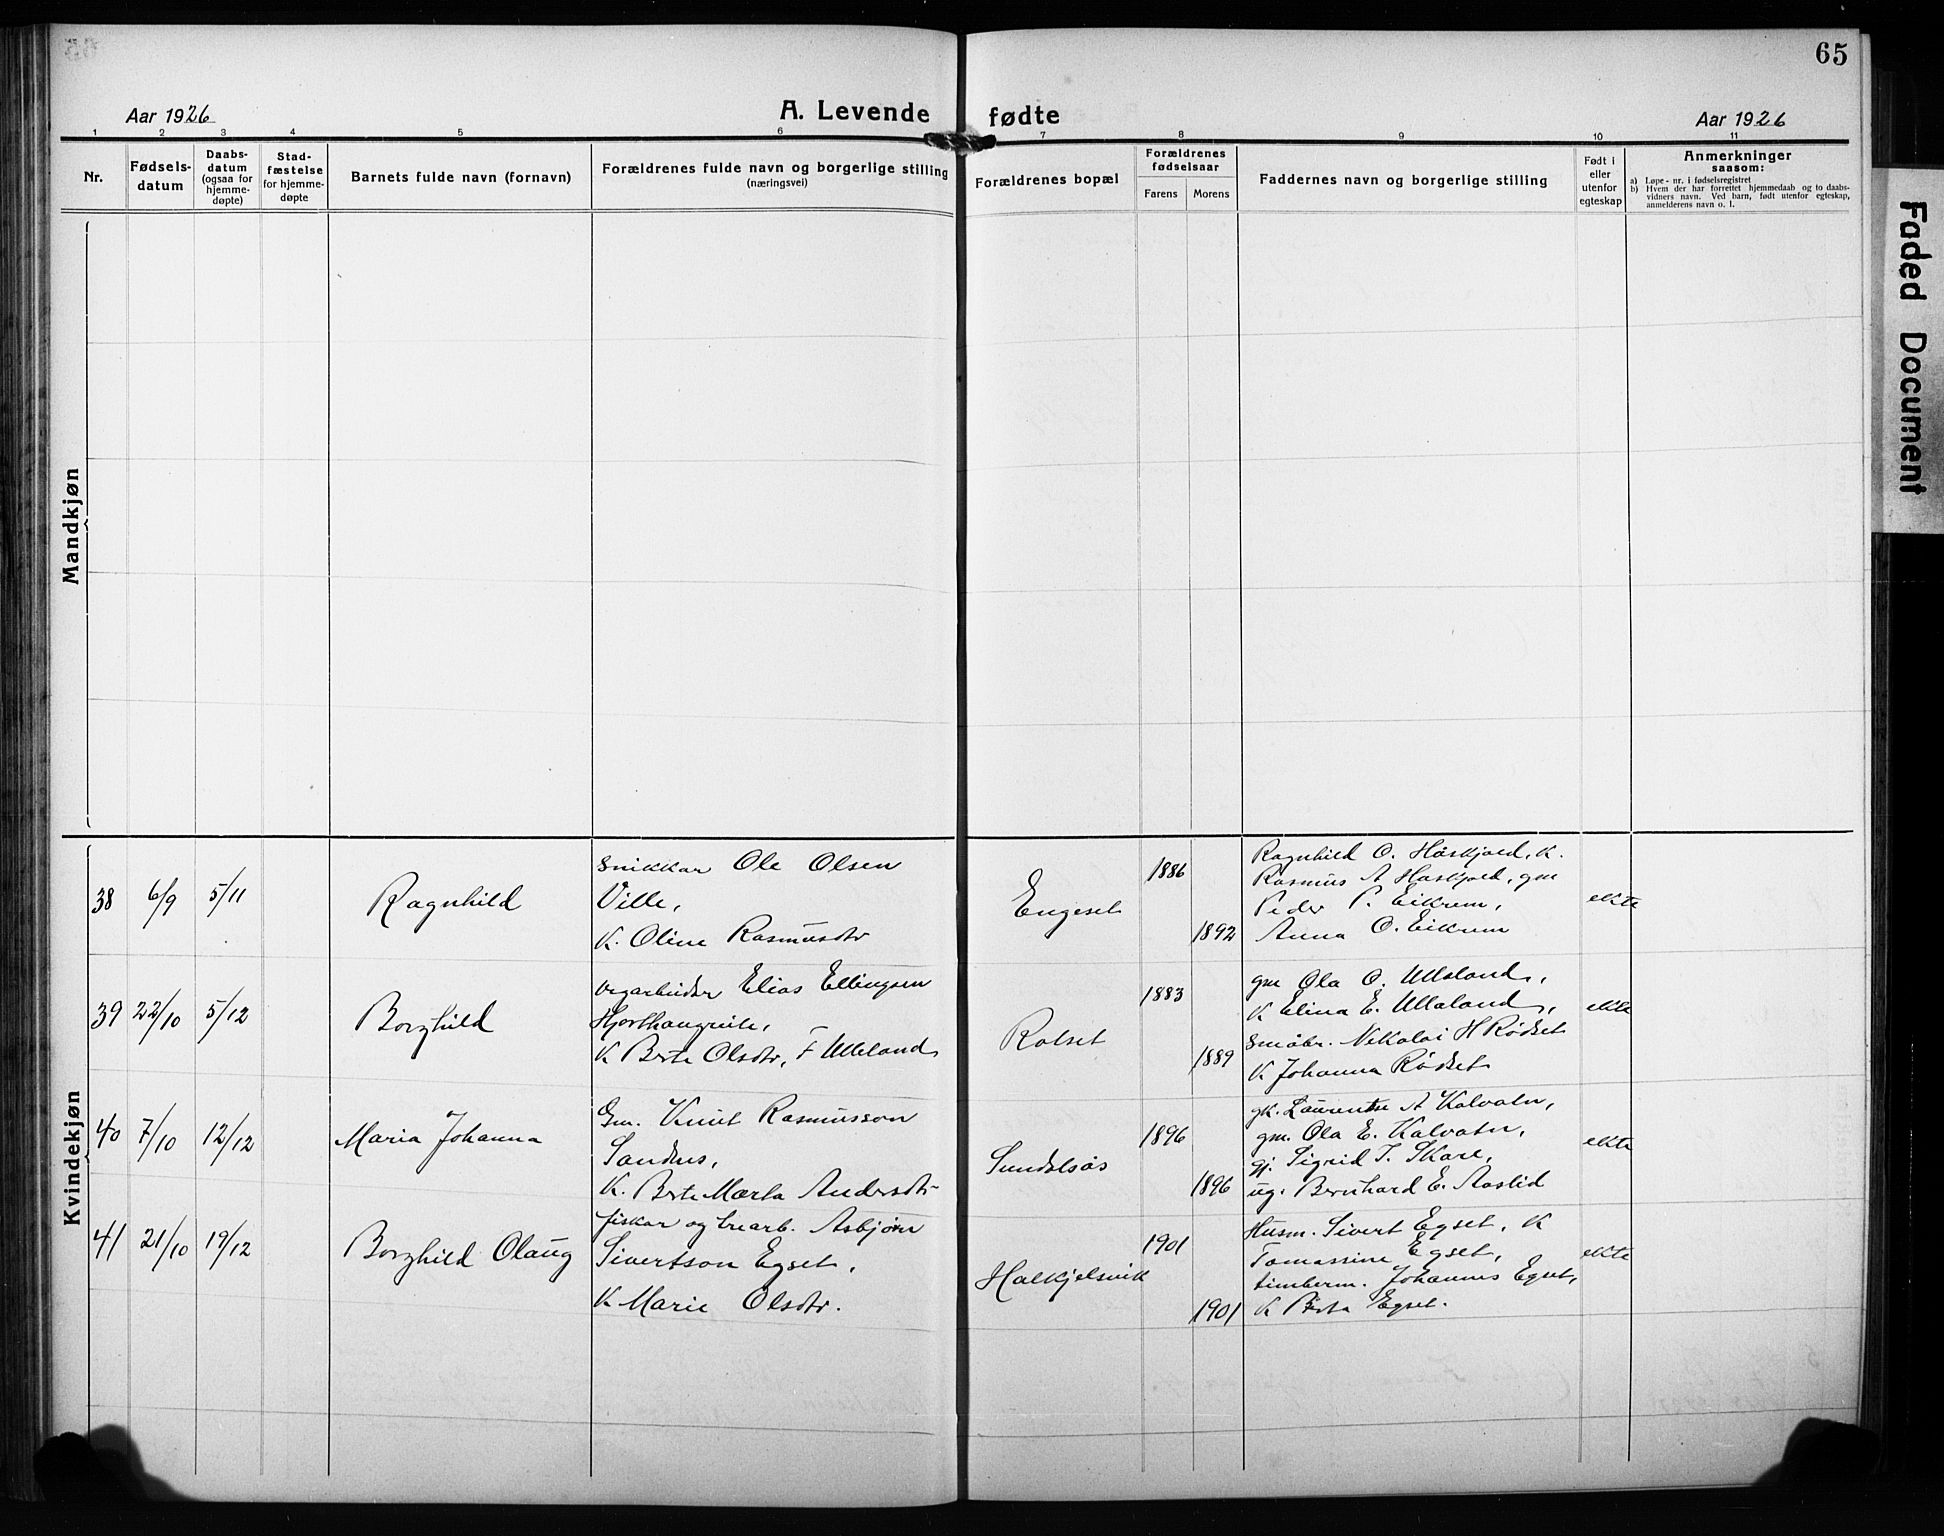 65
Aar 1926
A. Levende fødte
Aar 1926
1 2 3 4 5 6 7 8 9 10 11
Nr.
Fødsels-
datum
Daabs-
datum
(ogsaa for
hjemme-
døpte)
Stad-
fæstelse
for hjemme-
døpte
Barnets fulde navn (fornavn)
Forældrenes fulde navn og borgerlige stilling
(næringsvei)
Forældrenes bopæl
Forældrenes
fødselsaar
Farens
Morens
Faddernes navn og borgerlige stilling
Født i
eller
utenfor
egteskap
Anmerkninger
saasom:
a) Løpe-nr. i fødselsregistret
b) Hvem der har forrettet hjemmedaab og to daabs-
vidners navn. Ved barn, født utenfor egteskap,
anmelderens navn o. l.
Mandkjøn
Kvindekjøn
38 6/9 5/11
Ragnhild
Snikkar Ole Olsen
Ville,
K. Oline Rasmusdtr
Engeset
1886
1892
Ragnhild O. Haskjold, K.
Rasmus A Haskjold, gm
Peder P. Eikrem,
Anna O. Eikrem
ekte
39 22/10 5/12
Borghild
Vegarbeider Elias Ellingsen
Hjorthaugreite,
K Berte Olsdtr, F Ulleland
Rotset
1883
1889
gm Ola O. Ulleland,
K Elina E. Ulleland,
Småbr. Nikolai H Rødset
K Johanna Rødset
ekte
40 7/10 12/12
Maria Johanna
Gm. Knut Rasmusson
Sandnes,
K. Berte Marta Andersdtr
Sundalsøs
1896
1896
gk. Laurentse A Kalvatn,
gm. Ola E. Kalvatn,
gj. Sigrid I. Skare,
ug. Bernhard E. Aaslid
ekte
41 21/10 19/12
Borghild Olaug
fiskar og trearb. Asbjørn
Sivertson Egset,
K Marie Olsdtr.
Halkjelsvik
1901
1901
Husm. Sivert Egset, K
Tomassine Egset,
timberm. Johannes Egset,
K Berta Egset.
ekte
Faded Document